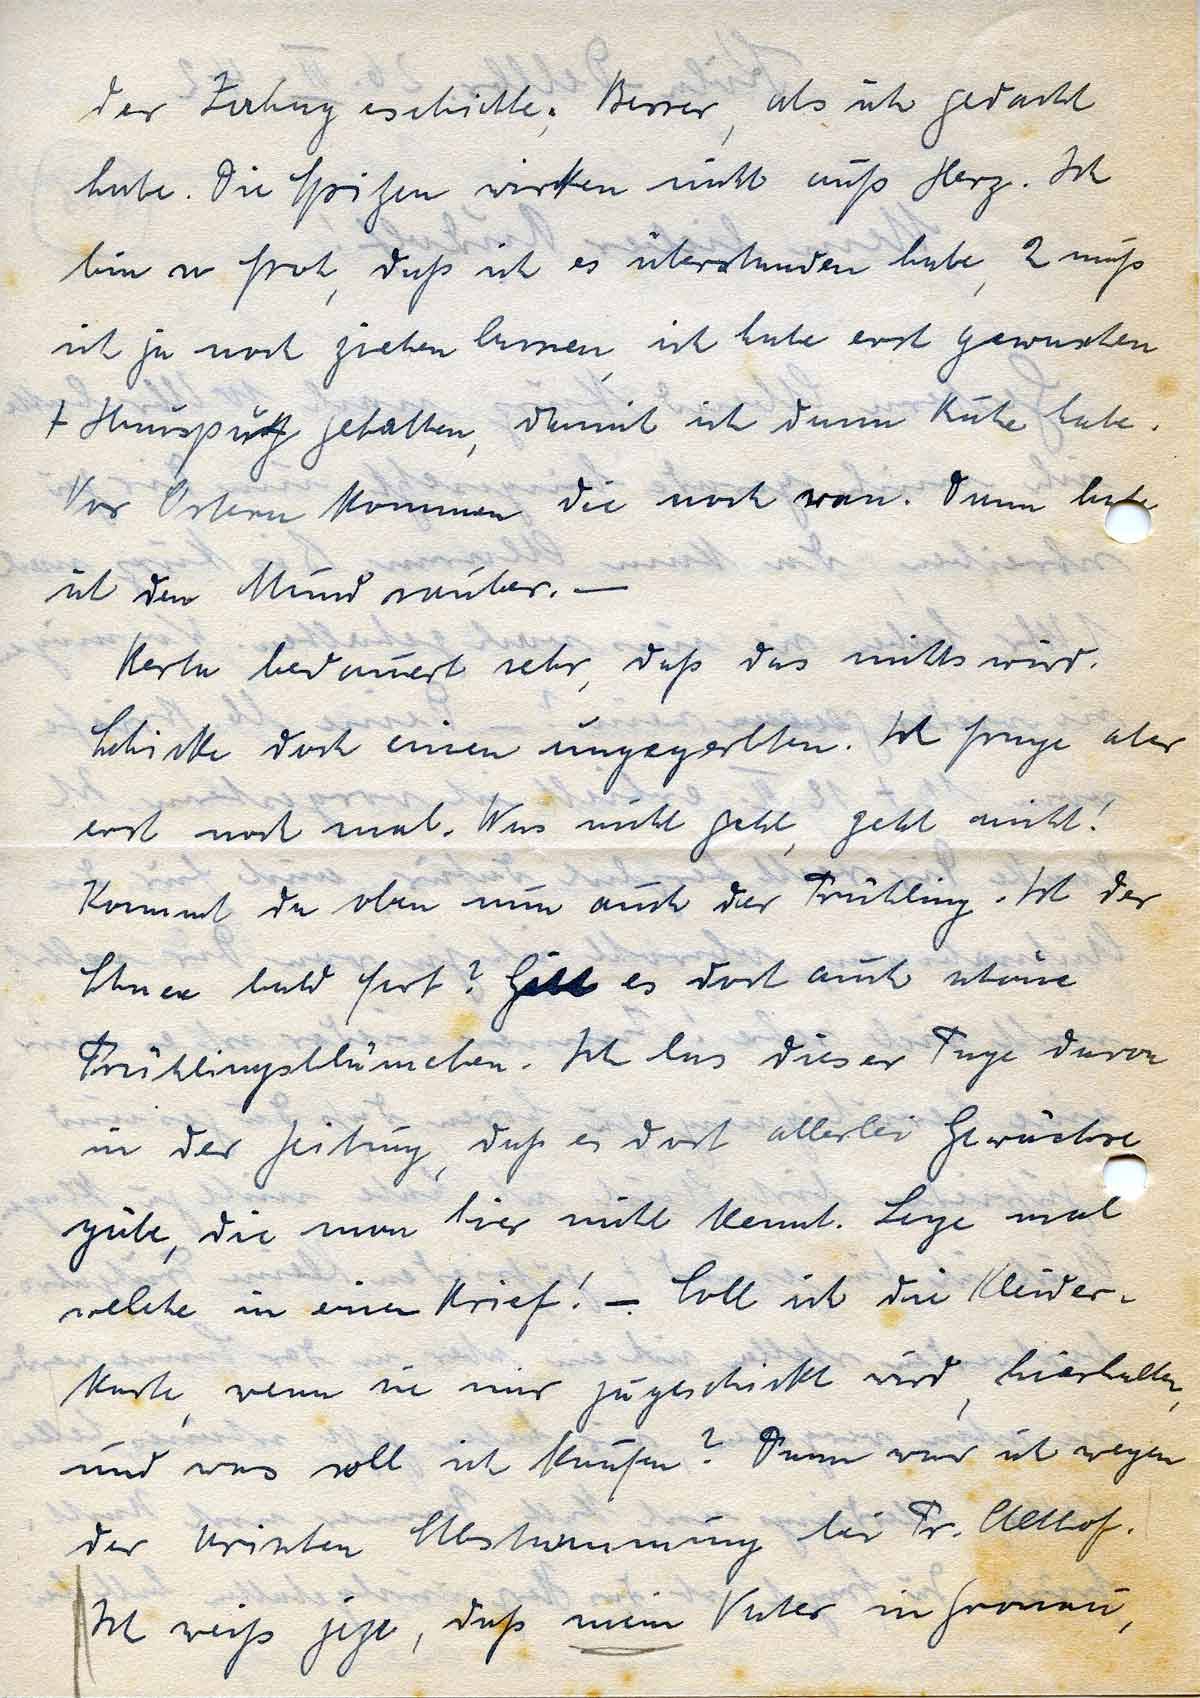 der Ziehung erhielte. Besser, als ich gedacht
habe. Die Spritzen wirkten nicht aufs Herz. Ich
bin so froh, daß ich es überstanden habe, 2 muß
ich ja noch ziehen lassen, ich habe erst gewaschen
+ Hausputz gehalten, damit ich dann Ruhe habe.
Vor Ostern kommen die noch ran. Dann habe
ich den Mund sauber. —
Herta bedauert sehr, daß das nichts wird.
Schicke doch einen ungegerbten. Ich frage aber
erst noch mal. Was nicht geht, geht nicht!
Kommt da oben nun auch der Frühling. Ist der
Schnee bald fort? Gibt es dort auch schöne
Frühlingsblümchen. Ich las dieser Tage davon
in der Zeitung, daß es dort allerlei Gewächse
gäbe, die man hier nicht kennt. Lege mal
welche in einen Brief! — Soll ich die Kleider-
karte, wenn sie mir zugeschickt wird, hierhalten,
und was soll ich kaufen? Dann war ich wegen
der arischen Abstammung bei Fr. Althof.
Ich weiß jetzt, daß mein Vater in Gronau,